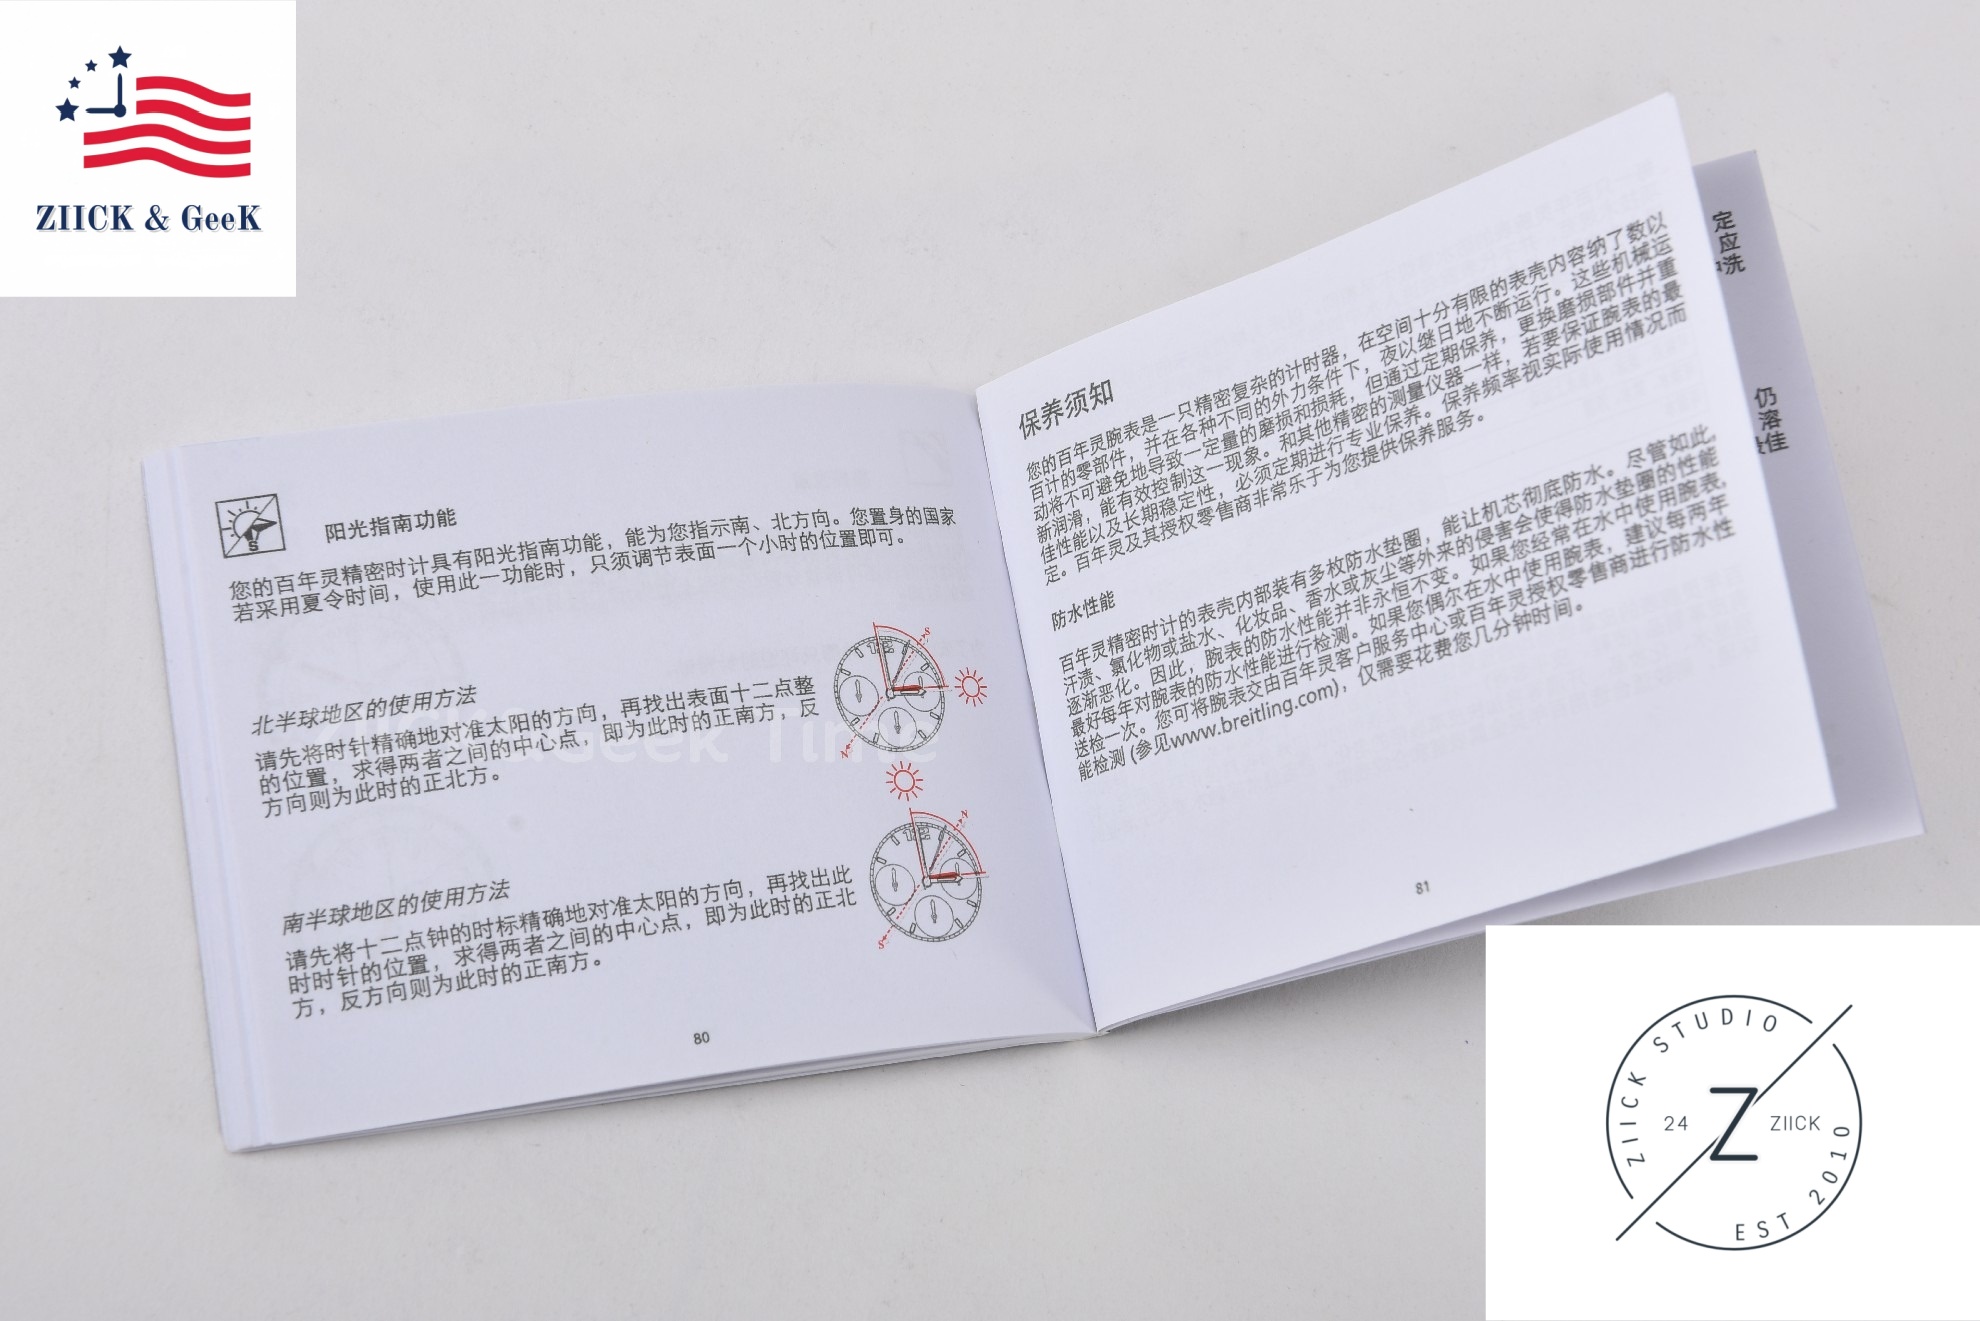 ZIICK & GeeK
阳光指南功能
您的百年灵精密时计具有阳光指南功能，能为您指示南、北方向。您置身的国家
若采用夏令时间，使用此一功能时，只须调节表面一个小时的位置即可。
北半球地区的使用方法
请先将时针精确地对准太阳的方向，再找出表面十二点整
的位置，求得两者之间的中心点，即为此时的正南方，反
方向则为此时的正北方。
Geek Time
12
S
N
南半球地区的使用方法
请先将十二点钟的时标精确地对准太阳的方向，再找出此
时时针的位置，求得两者之间的中心点，即为此时的正北
方，反方向则为此时的正南方。
12
N
S
80
保养须知
您的百年灵腕表是一只精密复杂的计时器，在空间十分有限的表壳内容纳了数以
百计的零部件，并在各种不同的外力条件下，夜以继日地不断运行。这些机械运
动将不可避免地导致一定量的磨损和损耗，但通过定期保养，更换磨损部件并重
新润滑，能有效控制这一现象。和其他精密的测量仪器一样，若要保证腕表的最
佳性能以及长期稳定性，必须定期进行专业保养。保养频率视实际使用情况而
定。百年灵及其授权零售商非常乐于为您提供保养服务。
防水性能
百年灵精密时计的表壳内部装有多枚防水垫圈，能让机芯彻底防水。尽管如此，
汗渍、氯化物或盐水、化妆品、香水或灰尘等外来的侵害会使得防水垫圈的性能
逐渐恶化。因此，腕表的防水性能并非永恒不变。如果您经常在水中使用腕表，
最好每年对腕表的防水性能进行检测。如果您偶尔在水中使用腕表，建议每两年
送检一次。您可将腕表交由百年灵客户服务中心或百年灵授权零售商进行防水性
能检测 (参见www.breitling.com)，仅需要花费您几分钟时间。
81
定
应
洗
仍
溶
佳
ZIICK STUDIO
24
Z
ZIICK
EST 2010